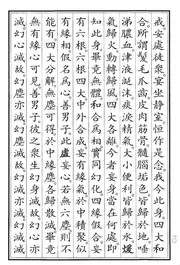 戒安處徒衆宴坐靜室恒作是念我今此身四大和
合所謂髮毛爪齒皮肉筋骨髓腦垢色皆歸於地唾
涕膿血津液涎沫痰淚精氣大小便利皆歸於水煖
氣歸火動轉歸風四大各離今者妄身當在何處即
知此身畢竟無體和合爲相實同幻化四緣假合妄
有六根六根四大中外合成妄有緣氣於中積聚似
有緣相假名爲心善男子此虛妄心若無六塵則不
能有四大分解無塵可得於中緣塵各歸散滅畢竟
無有緣心可見善男子彼之衆生幻身滅故幻心亦
滅幻心滅故幻塵亦滅幻塵滅故幻滅亦滅幻滅滅